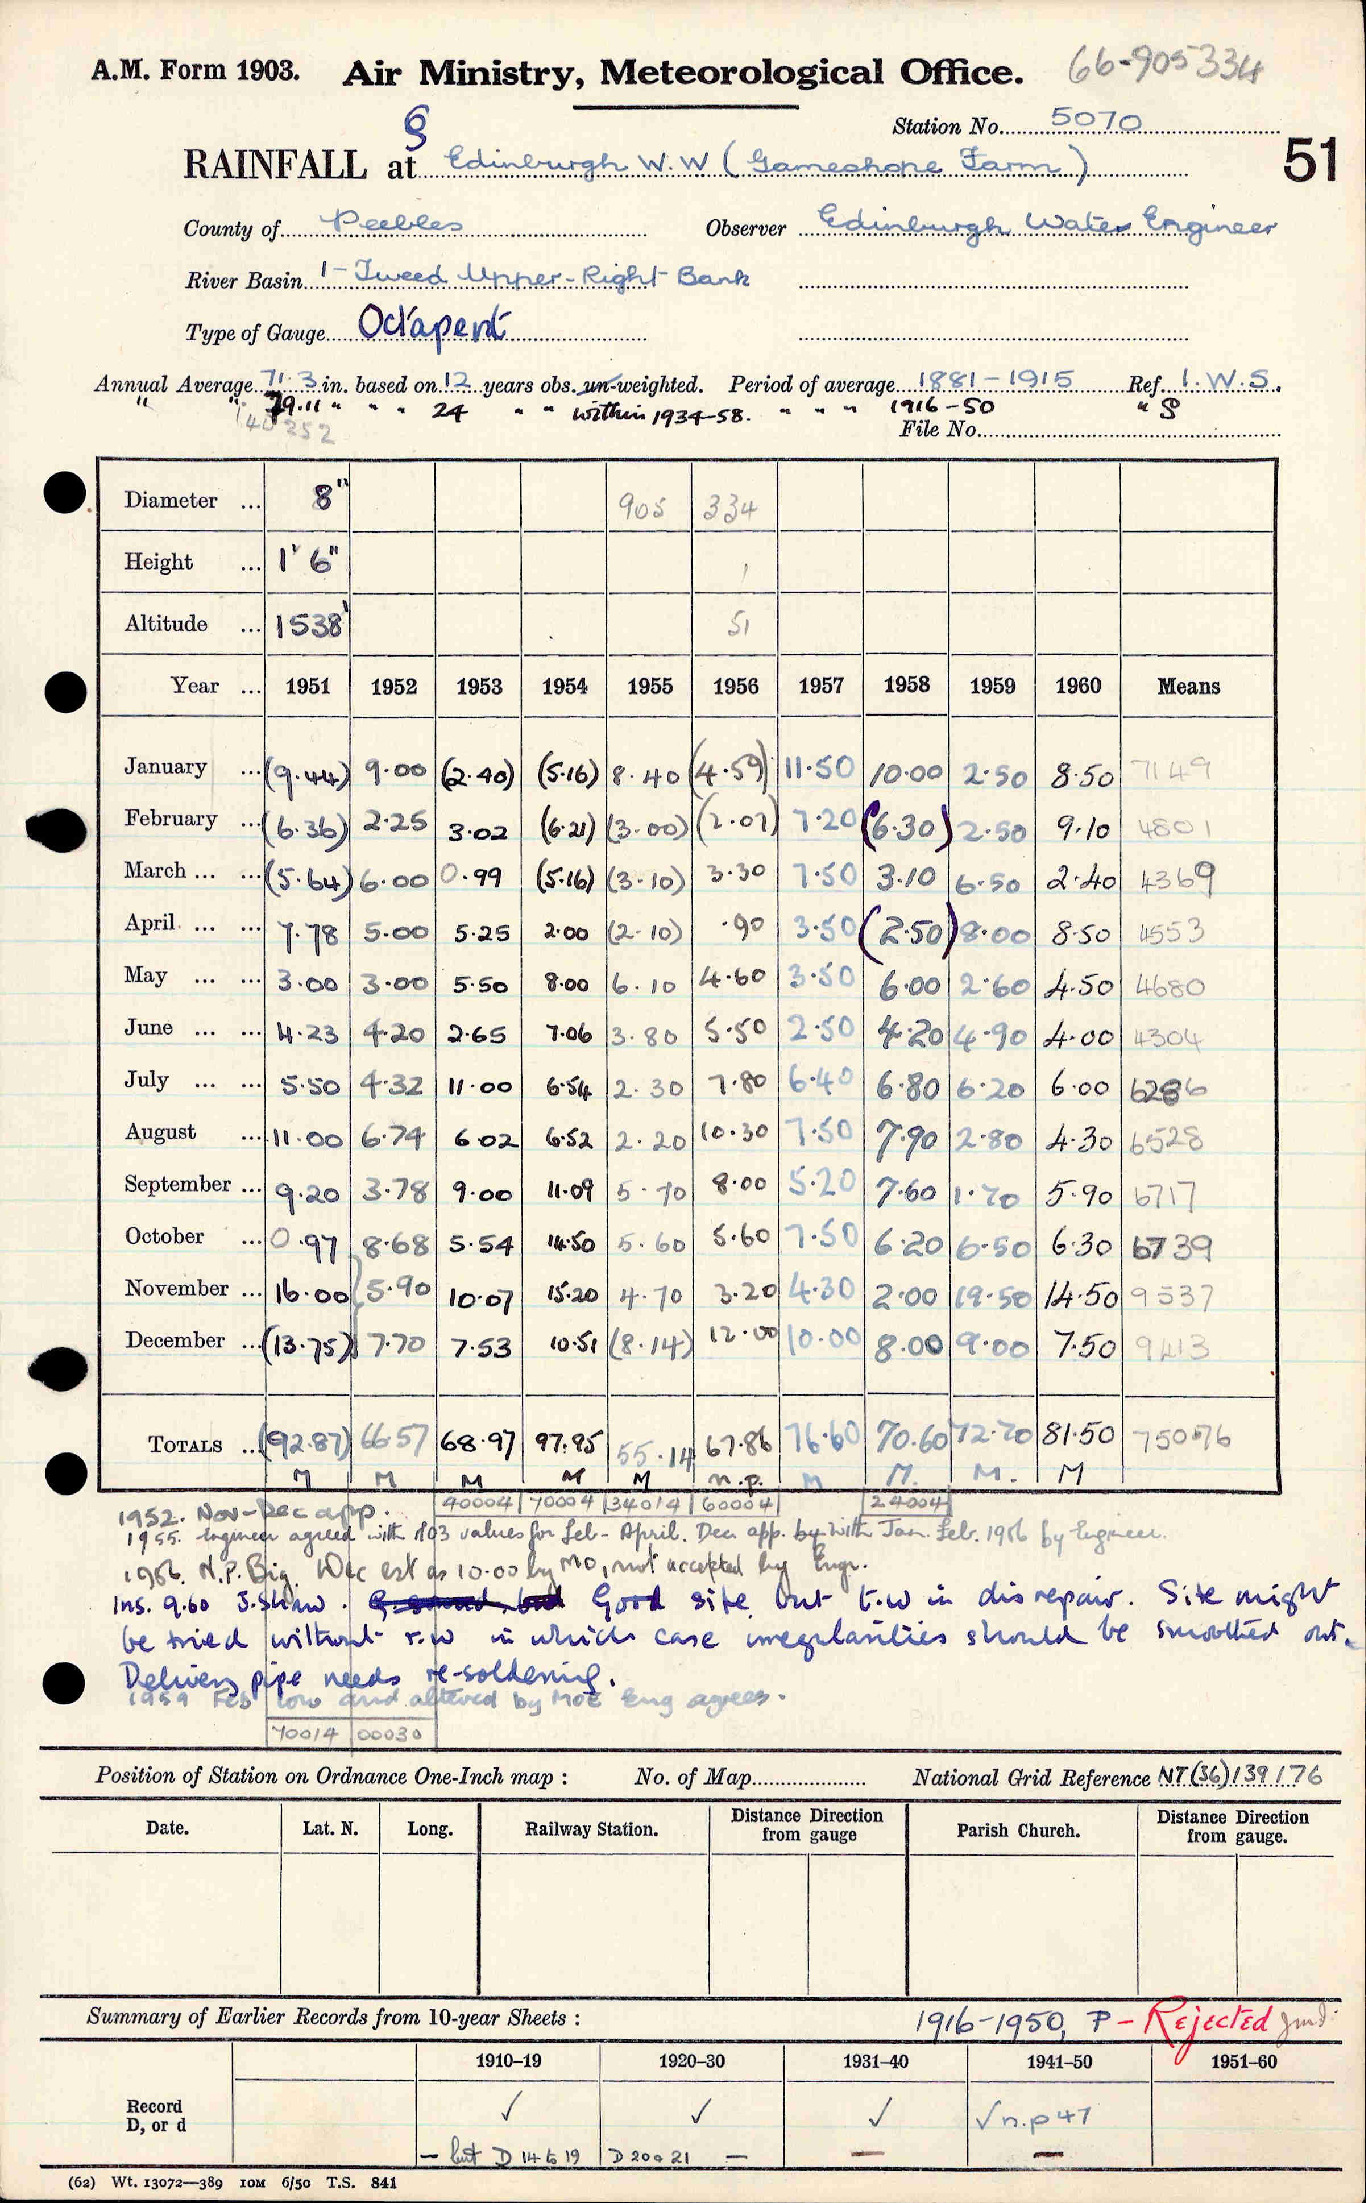 A.M. Form 1903. Air Ministry, Meteorological Office. 66-905334
Station No. 5070
§
RAINFALL at Edinburgh W.W (Gameshope Farm) 51
County of Peebles Observer Edinburgh Water Engineer
River Basin 1 - Tweed Upper-Right Bank
Type of Gauge Octapent
Annual Average 71.3 in. based on 12 years obs. un-weighted. Period of average 1881-1915 Ref. I.W.S.
" " 79.11 " " " 24 " " within 1934-58. " " " 1916-50 " S
40252
File No.
Diameter ... 8" 905 334
Height ... 1' 6" 1
Altitude ... 1538' 51
Year ... 1951 1952 1953 1954 1955 1956 1957 1958 1959 1960 Means
January ... (9.44) 9.00 (2.40) (5.16) 8.40 (4.59) 11.50 10.00 2.50 8.50 7149
February ... (6.36) 2.25 3.02 (6.21) (3.00) (2.07) 7.20 (6.30) 2.50 9.10 4801
March ... ... (5.64) 6.00 0.99 (5.16) (3.10) 3.30 7.50 3.10 6.50 2.40 4369
April ... ... 7.78 5.00 5.25 2.00 (2.10) .90 3.50 (2.50) 8.00 8.50 4553
May ... ... 3.00 3.00 5.50 8.00 6.10 4.60 3.50 6.00 2.60 4.50 4680
June ... ... 4.23 4.20 2.65 7.06 3.80 5.50 2.50 4.20 4.90 4.00 4304
July ... ... 5.50 4.32 11.00 6.54 2.30 7.80 6.40 6.80 6.20 6.00 6286
August ... 11.00 6.74 6.02 6.52 2.20 10.30 7.50 7.90 2.80 4.30 6528
September ... 9.20 3.78 9.00 11.09 5.70 8.00 5.20 7.60 1.70 5.90 6717
October ... 0.97 8.68 5.54 14.50 5.60 5.60 7.50 6.20 6.50 6.30 6739
November ... 16.00 5.90 10.07 15.20 4.70 3.20 4.30 2.00 19.50 14.50 9537
December ... (13.75) 7.70 7.53 10.51 (8.14) 12.00 10.00 8.00 9.00 7.50 9413
TOTALS ... (92.87) 66.57 68.97 97.95 55.14 67.86 76.60 70.60 72.70 81.50 75076
M M M M M n.p. M M. M. M
40004 70004 34014 60004 24004
1952. Nov-Dec app.
1955. Engineer agreed with 1903 values for Feb-April. Dec app. by with Jan. Feb. 1956 by Engineer.
1956. N.P. Big. Dec est as 10.00 by MO, not accepted by Engr.
Ins. 9.60 J.Shaw. Good site but t.w in disrepair. Site might
be tried without t.w in which case irregularities should be smoothed out.
Delivery pipe needs re-soldering.
1959 Feb low and altered by MOE Eng agrees.
70014 00030
Position of Station on Ordnance One-Inch map : No. of Map National Grid Reference NT(36)139176
Date. Lat. N. Long. Railway Station. Distance Direction from gauge Parish Church. Distance Direction from gauge.
Summary of Earlier Records from 10-year Sheets : 1916-1950, P - Rejected
1910–19 1920–30 1931–40 1941–50 1951–60
Record D, or d ✓ ✓ ✓ ✓ n.p 47
- but D 14 to 19 D 20 & 21 - - -
(62) Wt. 13072—389 IOM 6/50 T.S. 841